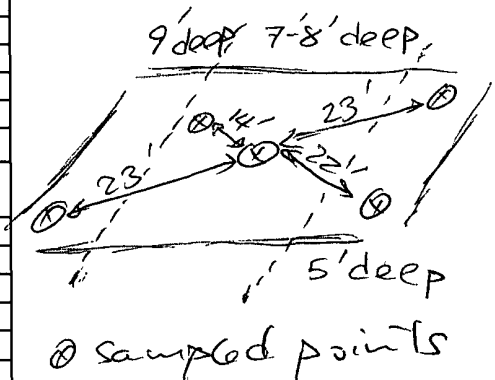 9' deep 7-8' deep
23'
4'
23'
22'
5' deep
ⓧ sampled points